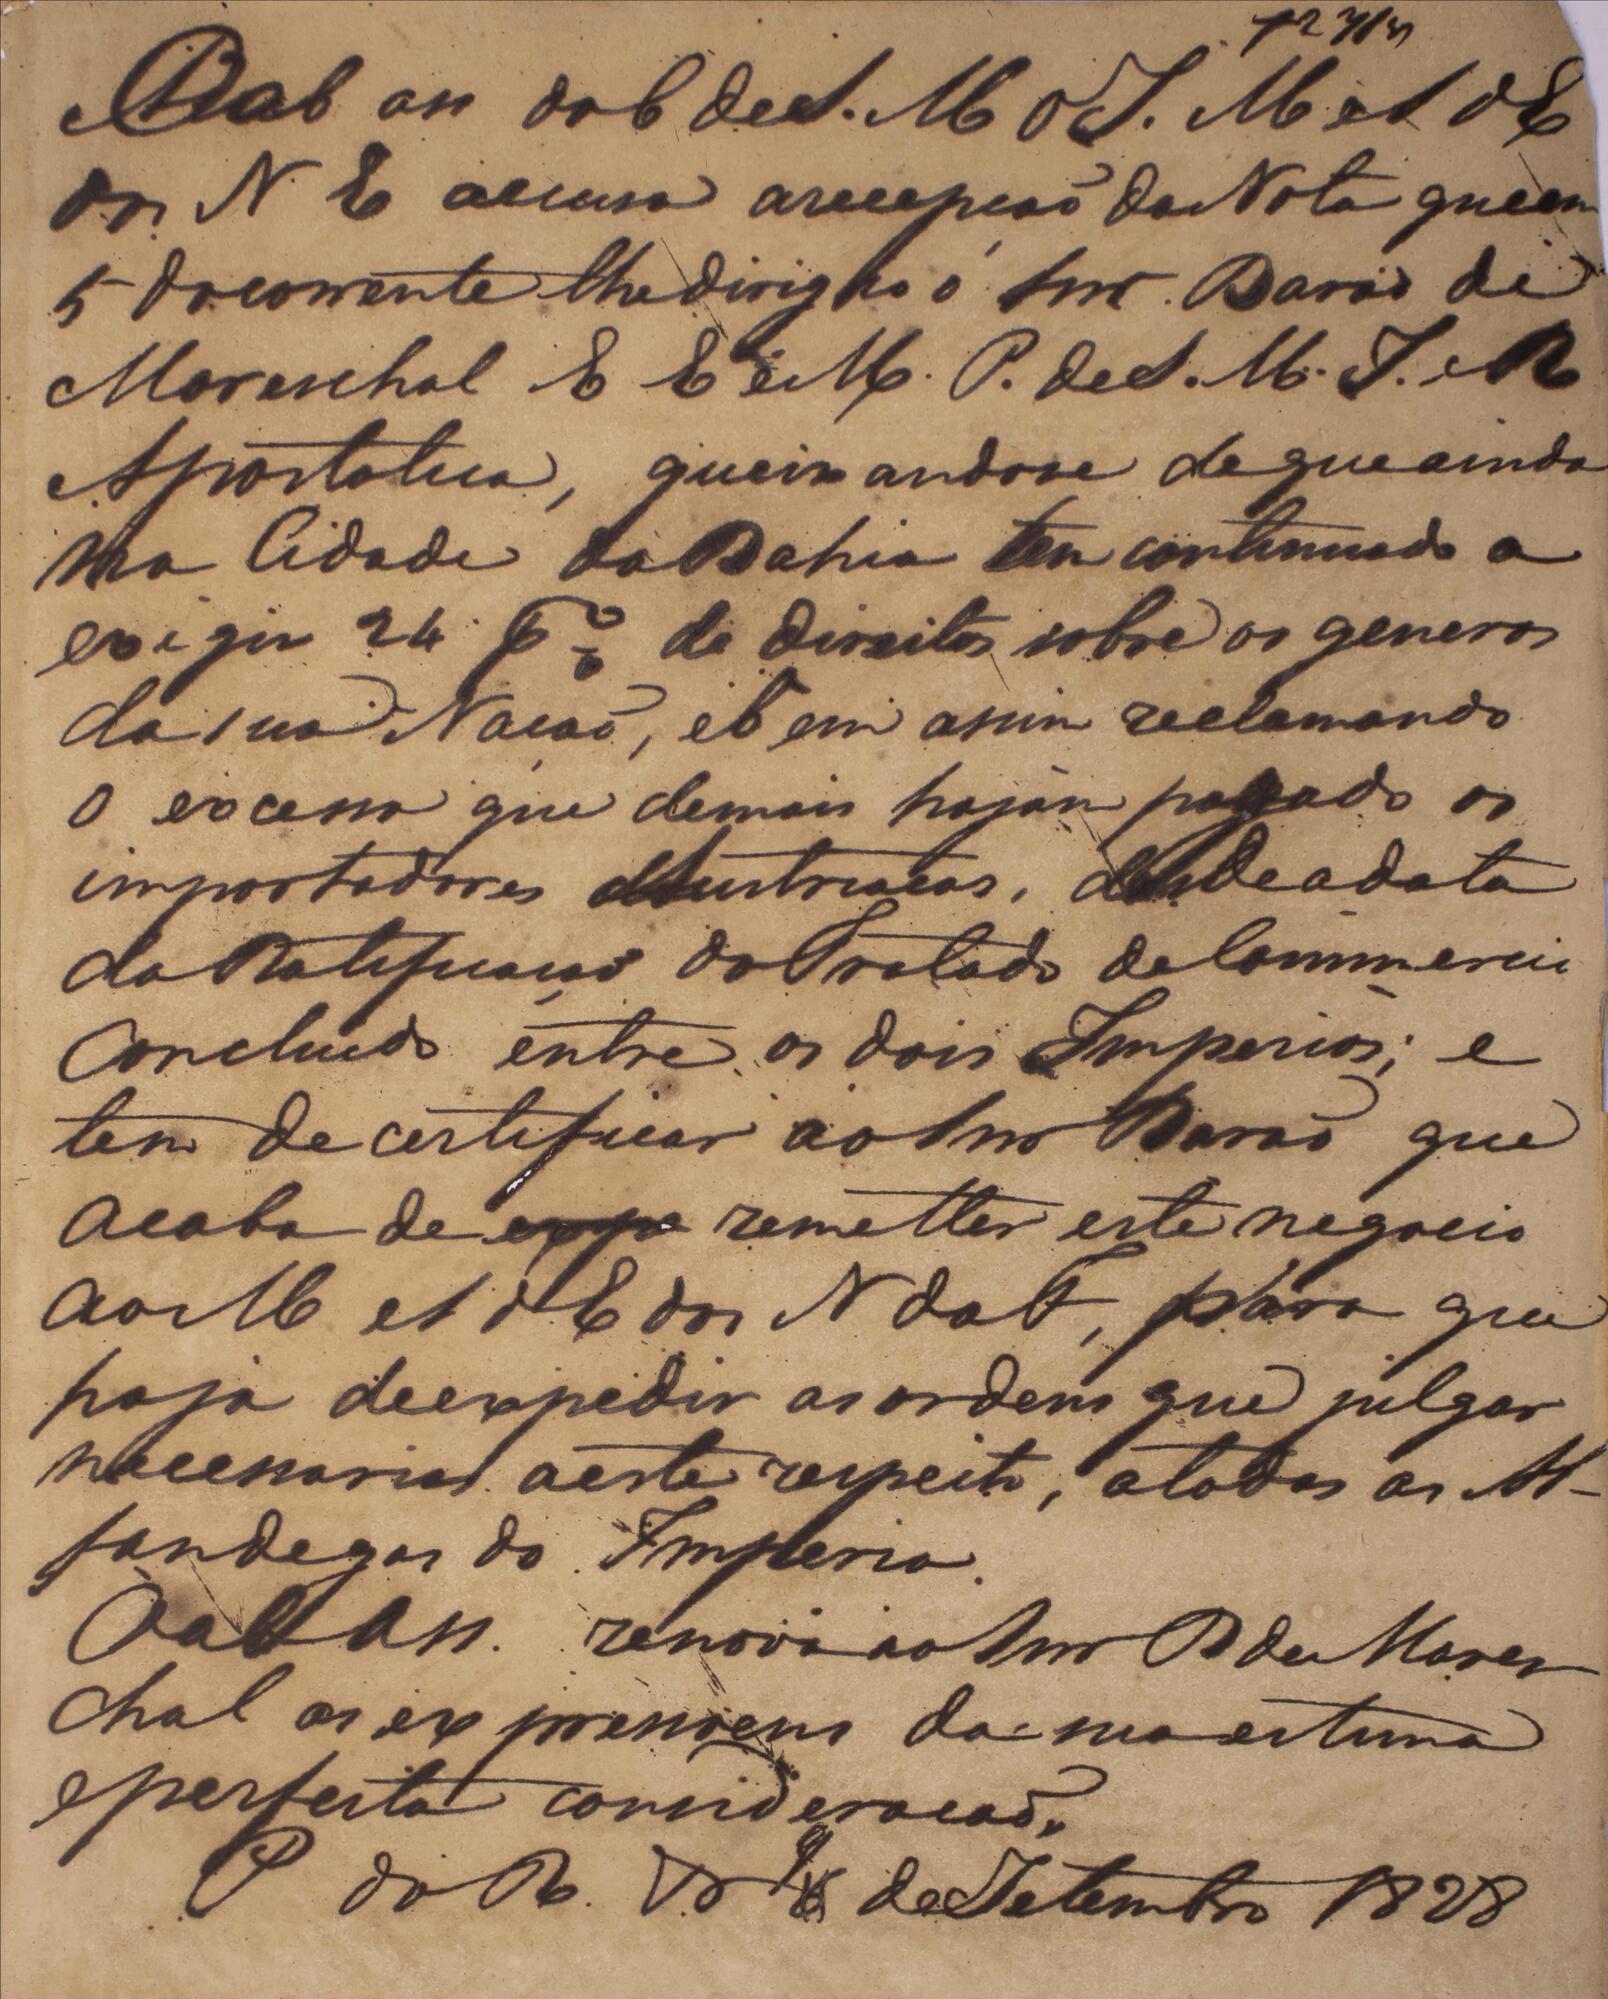 O Ab an do C de S. M. O I. M e S d E
dos N E accusa a recepção da Nota que em
5 do corrente lhe dirigio o Snr. Barão de
Mareschal E E e M. P. de S. M. I. e R
Apostolica, queixandose de que ainda
na Cidade da Bahia tem continuado a
exigir 24 p% de direitos sobre os generos
da sua Nação, e bem assim reclamando
o excesso que demais hajão pagado os
importadores Austriacos, desde a data
da Ratificação do Tratado de Commercio
Concluido entre os dois Imperios; e
tem de certificar ao Snr Barão que
acaba de remetter este negocio
ao M e S d E dos N da F, para que
haja de expedir as ordens que julgar
necessarias a este respeito, a todas as Al-
fandegas do Imperio.
O ab an. renova ao Snr B de Mares
chal as expressoens da sua estima
e perfeita consideração.
P do R. de Setembro 1828